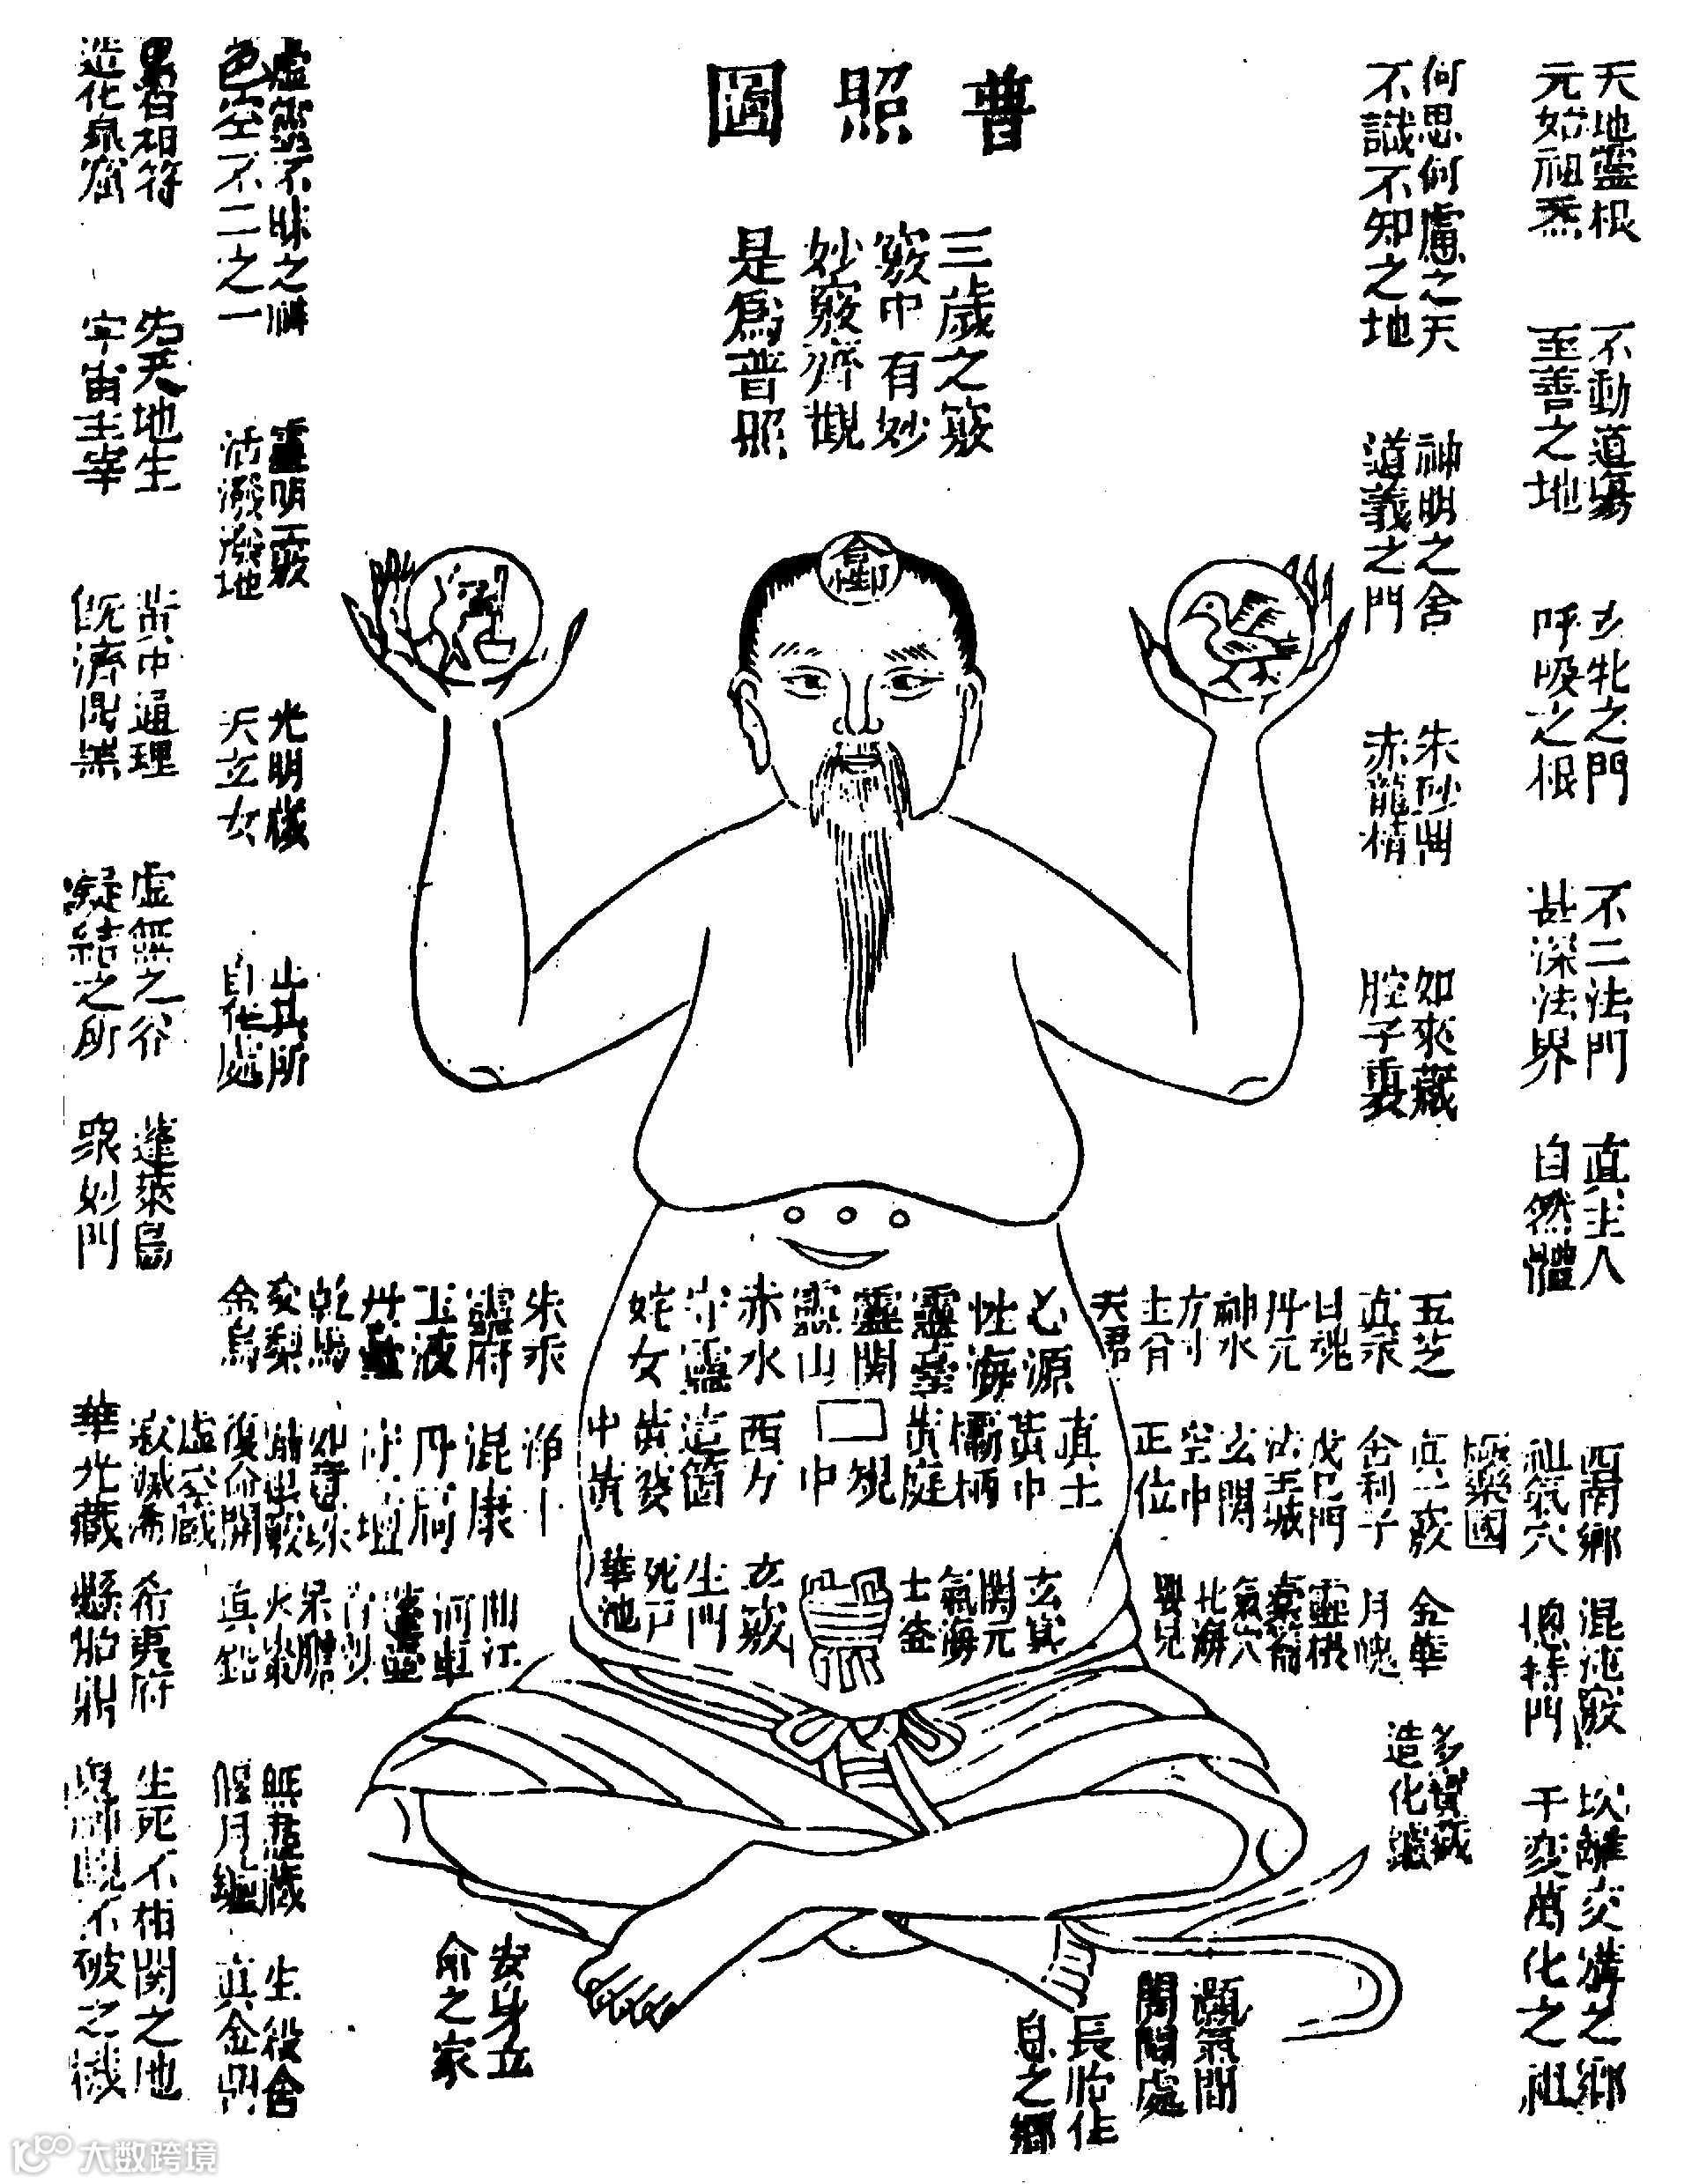 普照圖
三歲之竅
竅中有妙
妙竅齊觀
是爲普照
天地靈根
元始祖炁
不動道場
至善之地
玄牝之門
呼吸之根
不二法門
甚深法界
眞主人
自然體
何思何慮之天
不識不知之地
神明之舍
道義之門
朱砂
赤龍精
如來藏
腔子裏
虛靈不昧之神
色空不二之一
靈明一竅
活潑潑地
光明藏
天玄女
止其所
自在處
相符
造化泉窟
先天地生
宇宙主宰
黃中通理
既濟鼎器
虛無之谷
凝結之所
蓬萊島
衆妙門
五芝
眞汞
日魂
丹元
神水
方寸
天君
心源
性海
靈臺
靈關
靈山
赤水
守靈
姹女
朱汞
靈府
玉液
乾馬
交梨
金烏
西南鄉
祖氣穴
極樂國
眞一竅
舍利子
戊己門
法王城
玄關
空中
正位
眞土
黃中
欛柄
黃庭
中
西方
這箇
中黃
混康
丹扃
復命關
虛空藏
寂滅海
華光藏
混沌竅
總持門
金華
月魄
靈根
橐籥
氣穴
北海
嬰兒
玄冥
關元
氣海
土釜
玄竅
生門
死戶
華池
曲江
河車
眞鉛
希夷府
懸胎鼎
多寶藏
造化爐
坎離交媾之鄉
千變萬化之祖
無盡藏
偃月爐
生殺舍
眞金鼎
生死不相關之地
鬼神覷不破之機
安身立
命之家
顥氣門
關閻處
長胎住
息之鄉
大数跨境